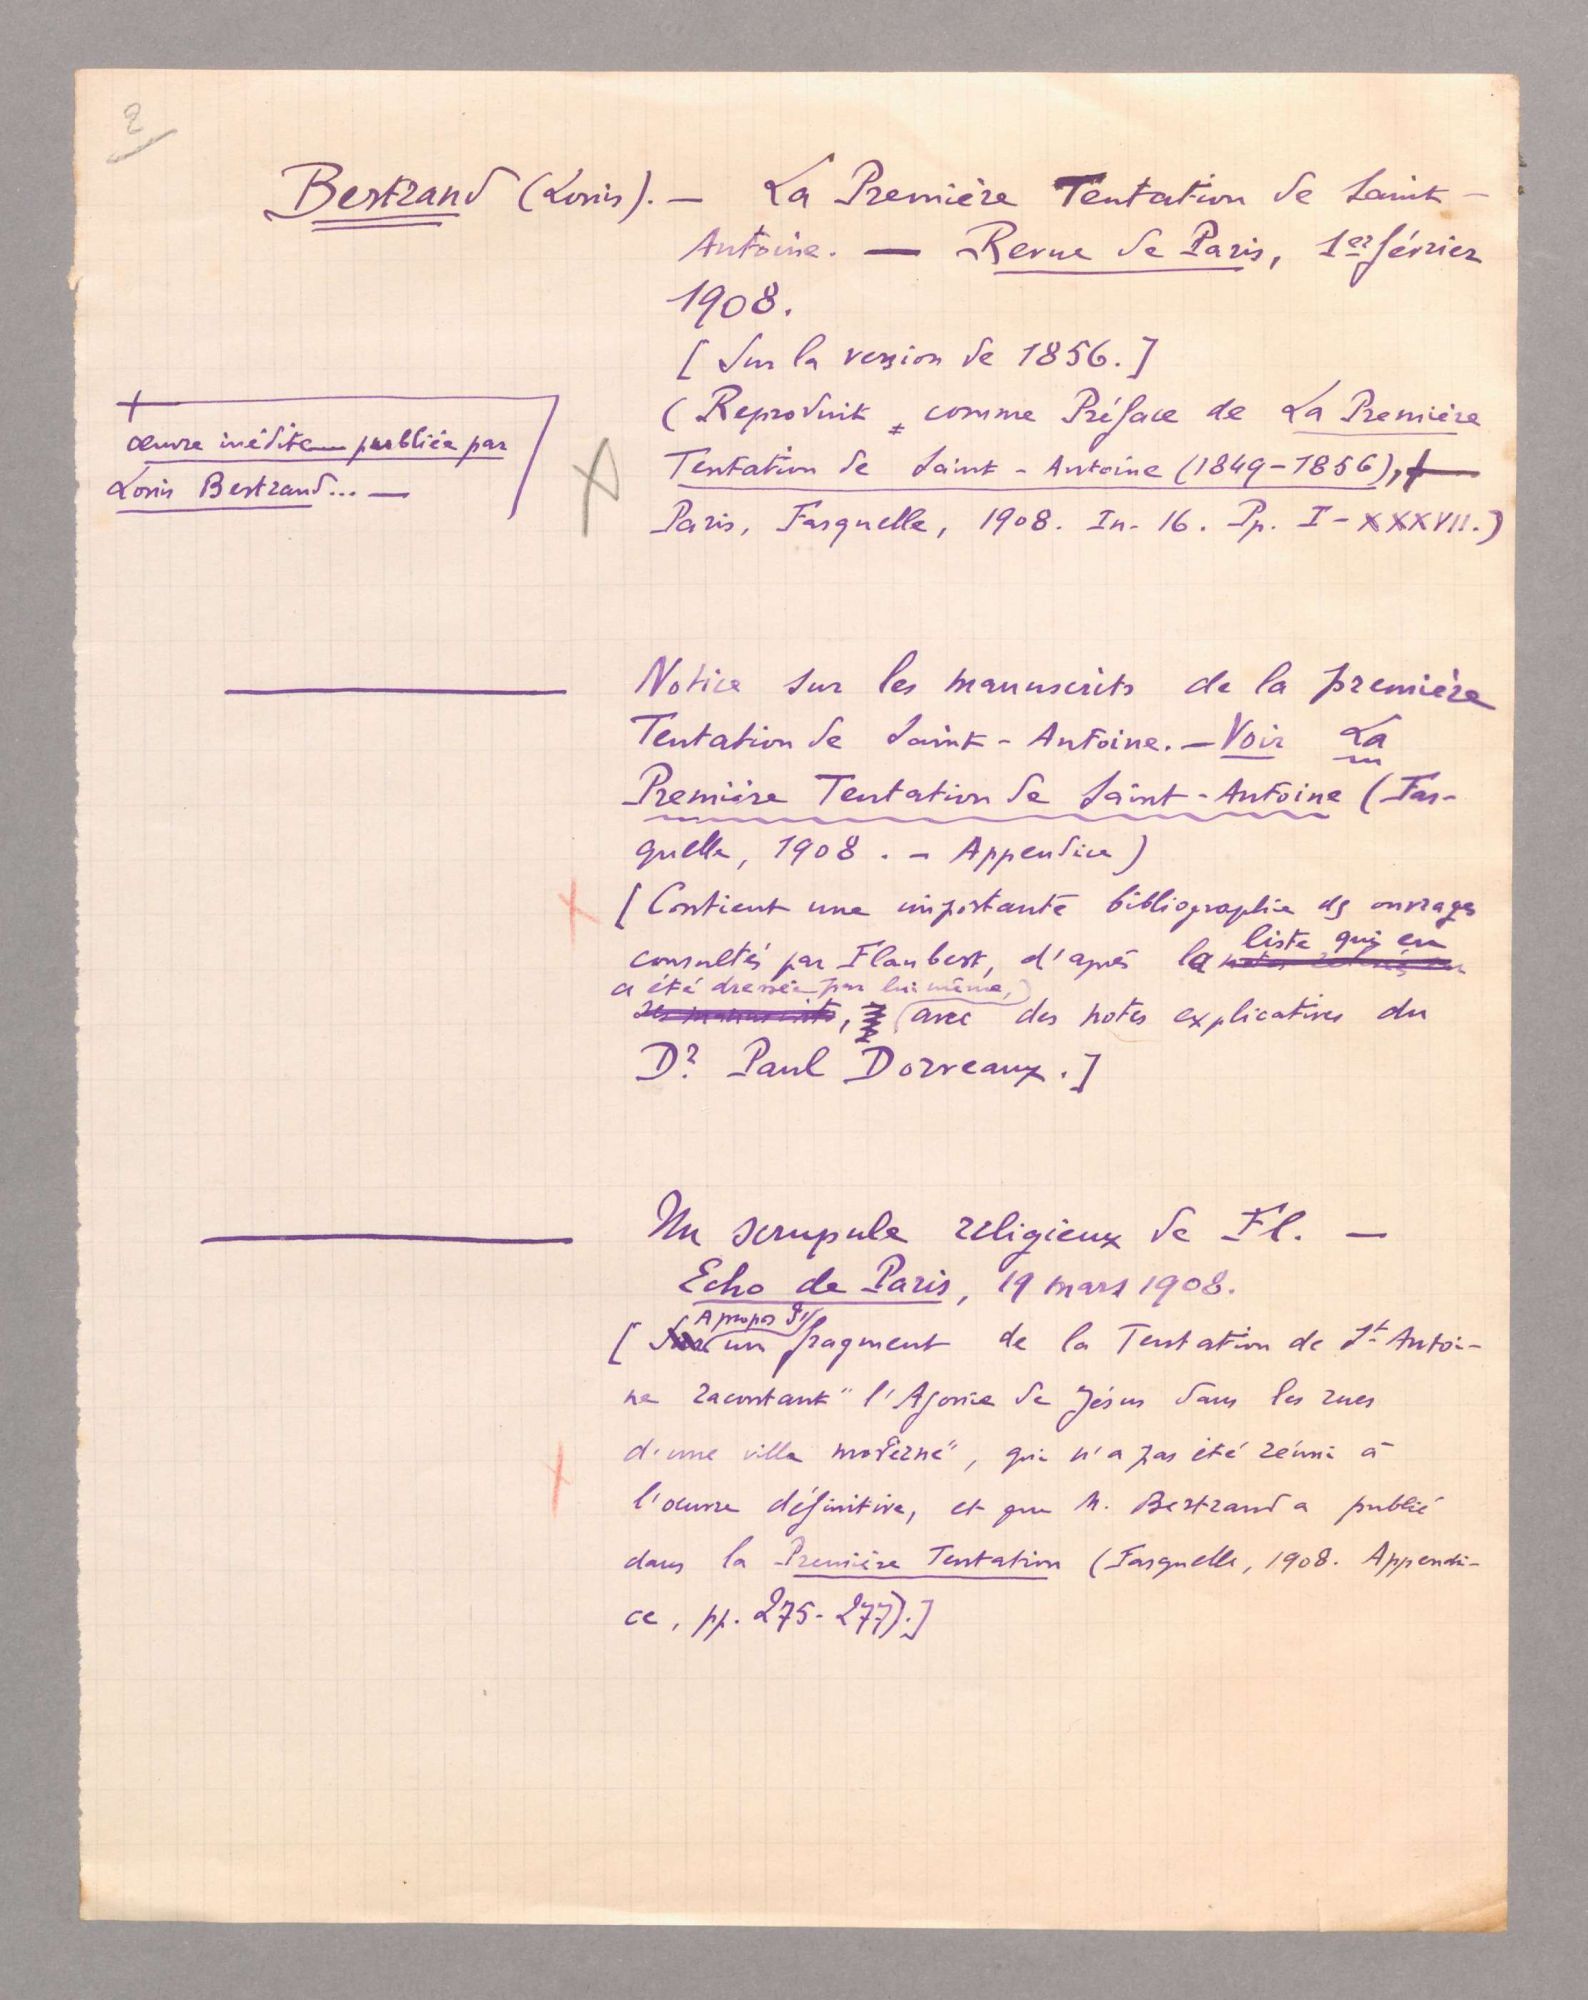 2
Bertrand (Louis). — La Première Tentation de Saint-
Antoine. — Revue de Paris, 1er février
1908.
[Sur la version de 1856.]
(Reproduit comme Préface de La Première
Tentation de Saint-Antoine (1849-1856), +
Paris, Fasquelle, 1908. In-16. Pp. I-XXXVII.)
+
œuvre inédite publiée par
Louis Bertrand... —
Notice sur les manuscrits de la première
Tentation de Saint-Antoine. — Voir La
Première Tentation de Saint-Antoine (Fas-
quelle, 1908. - Appendice)
[Contient une importante bibliographie des ouvrages
consultés par Flaubert, d'après la liste qui en
a été dressée par lui même,
avec des notes explicatives du
Dr Paul Dorveaux.]
Un scrupule religieux de Fl. —
Echo de Paris, 19 mars 1908.
[A propos d'un fragment de la Tentation de St Antoi-
ne racontant "l'Agonie de Jésus dans les rues
d'une ville moderne", qui n'a pas été réuni à
l'œuvre définitive, et que M. Bertrand a publié
dans la Première Tentation (Fasquelle, 1908. Appendi-
ce, pp. 275-277).]